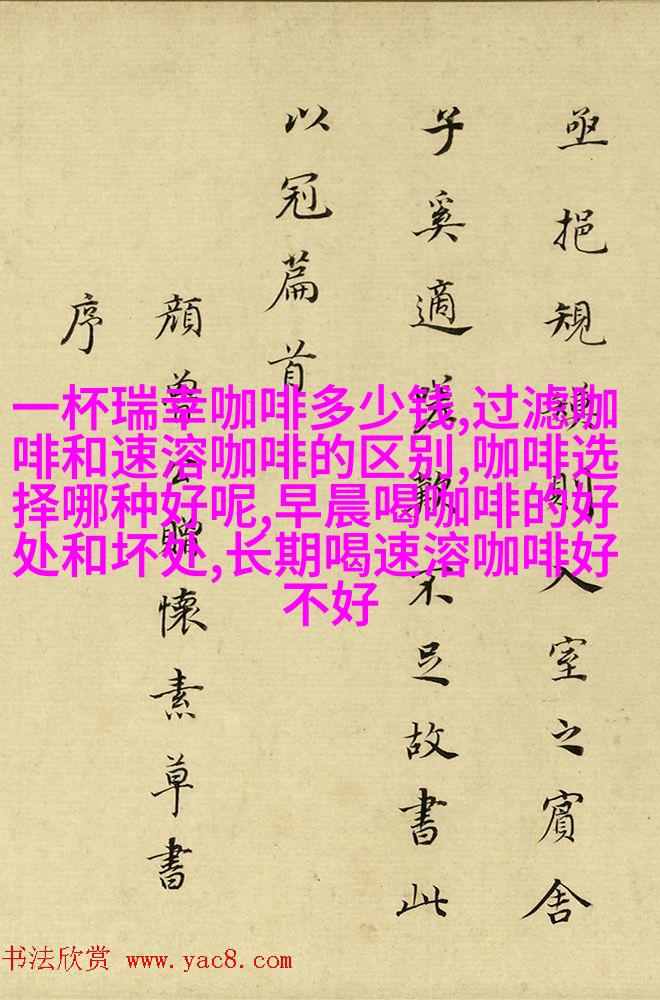 亟挹規模則入室之賓舍
子奚適嗟歎不足故書此
以冠篇首
顔魯公贈懷素草書
序
一杯瑞幸咖啡多少钱,过滤咖
啡和速溶咖啡的区别,咖啡选
择哪种好呢,早晨喝咖啡的好
处和坏处,长期喝速溶咖啡好
不好
书法欣赏 www.yac8.com